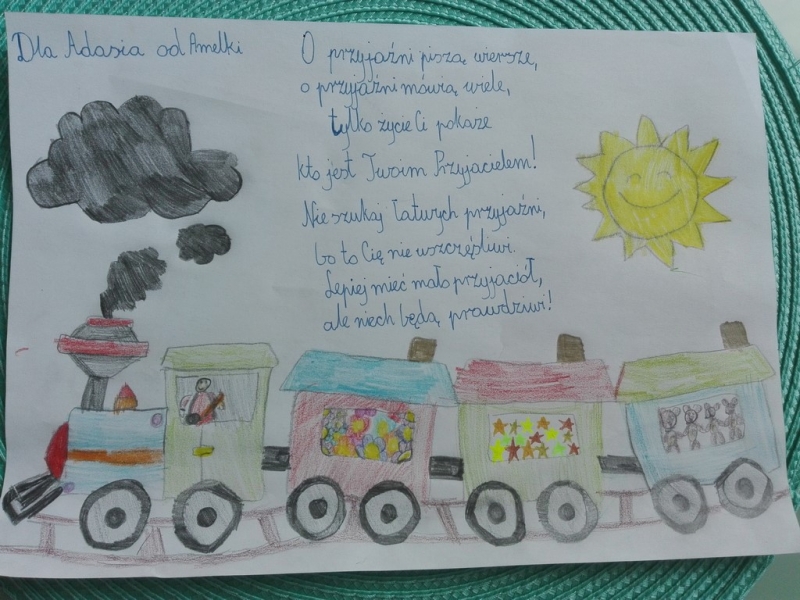 Dla Adasia od Amelki
O przyjaźni piszą wiersze,
o przyjaźni mówią wiele,
tylko życie Ci pokaże
kto jest Twoim Przyjacielem!
Nie szukaj łatwych przyjaźni,
bo to Cię nie uszczęśliwi.
Lepiej mieć mało przyjaciół,
ale niech będą prawdziwi!